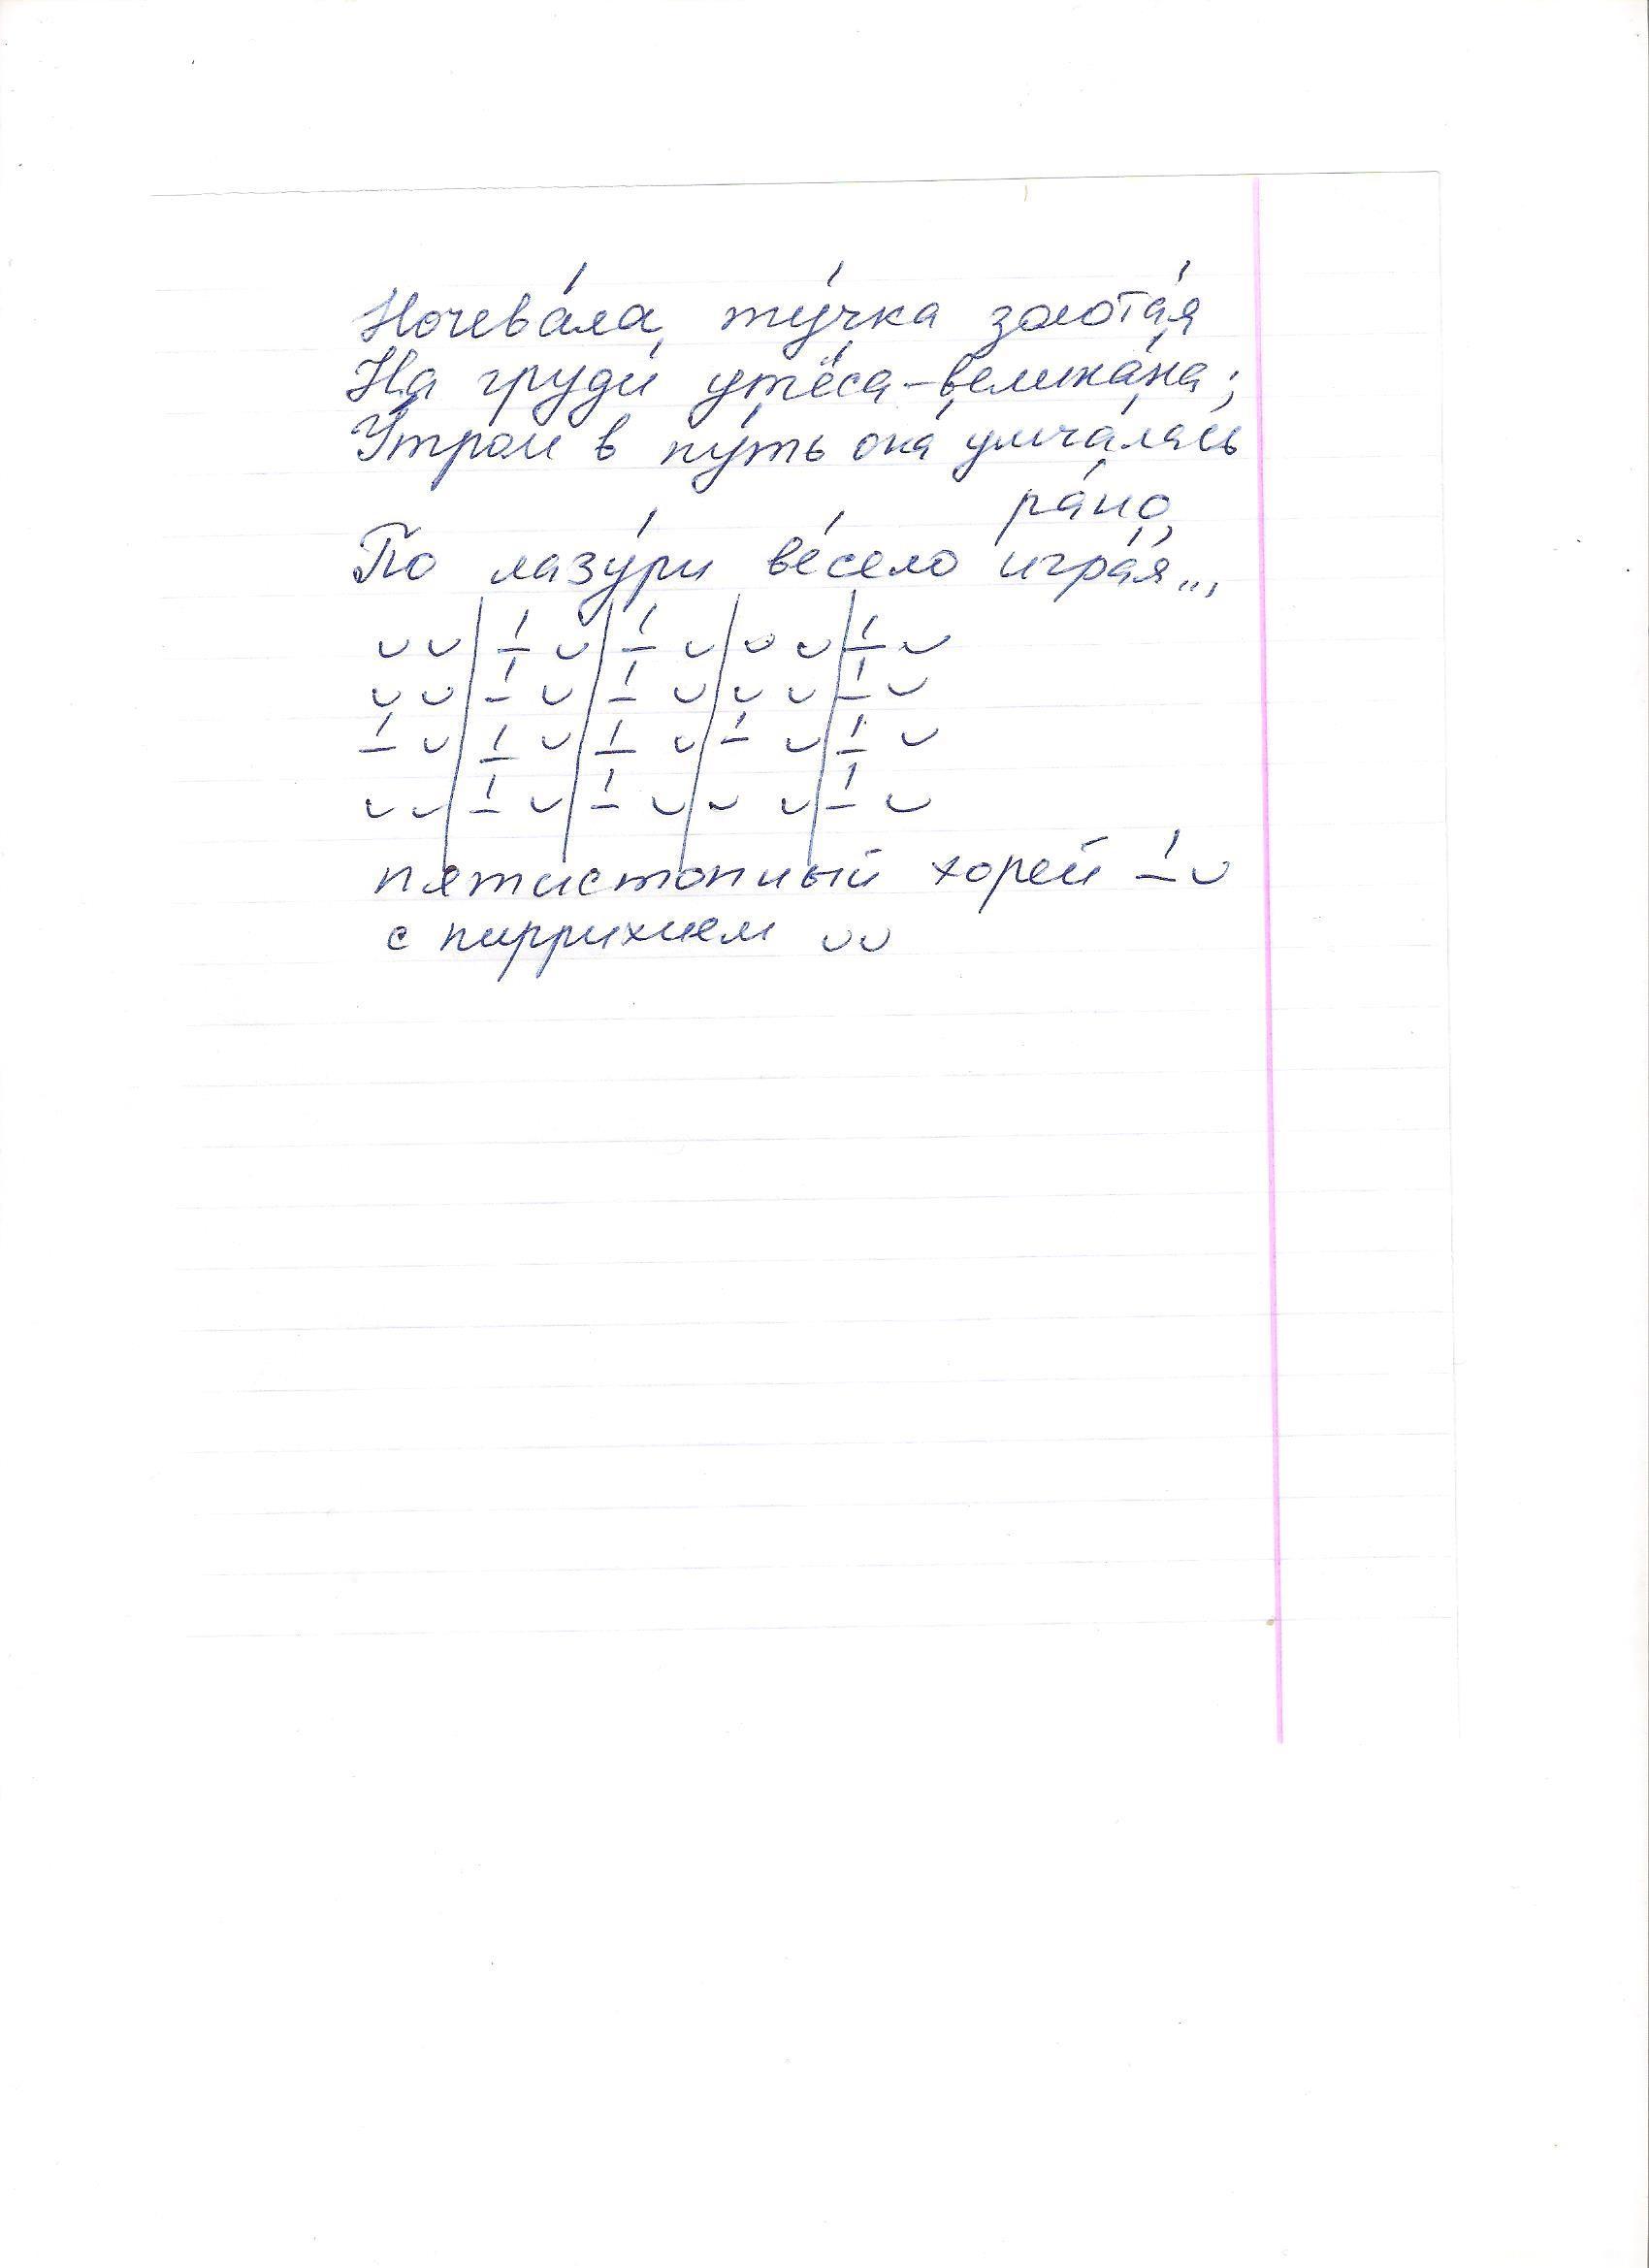 Ночева́ла ту́чка золота́я
На груди́ утёса-велика́на;
У́тром в пу́ть она́ умча́лась
ра́но,
По лазу́ри ве́село игра́я...
∪ ∪ | –́ ∪ | –́ ∪ | ∪ ∪ | –́ ∪
∪ ∪ | –́ ∪ | –́ ∪ | ∪ ∪ | –́ ∪
–́ ∪ | –́ ∪ | –́ ∪ | –́ ∪ | –́ ∪
∪ ∪ | –́ ∪ | –́ ∪ | ∪ ∪ | –́ ∪
пятистопный хорей –́ ∪
с пиррихием ∪∪